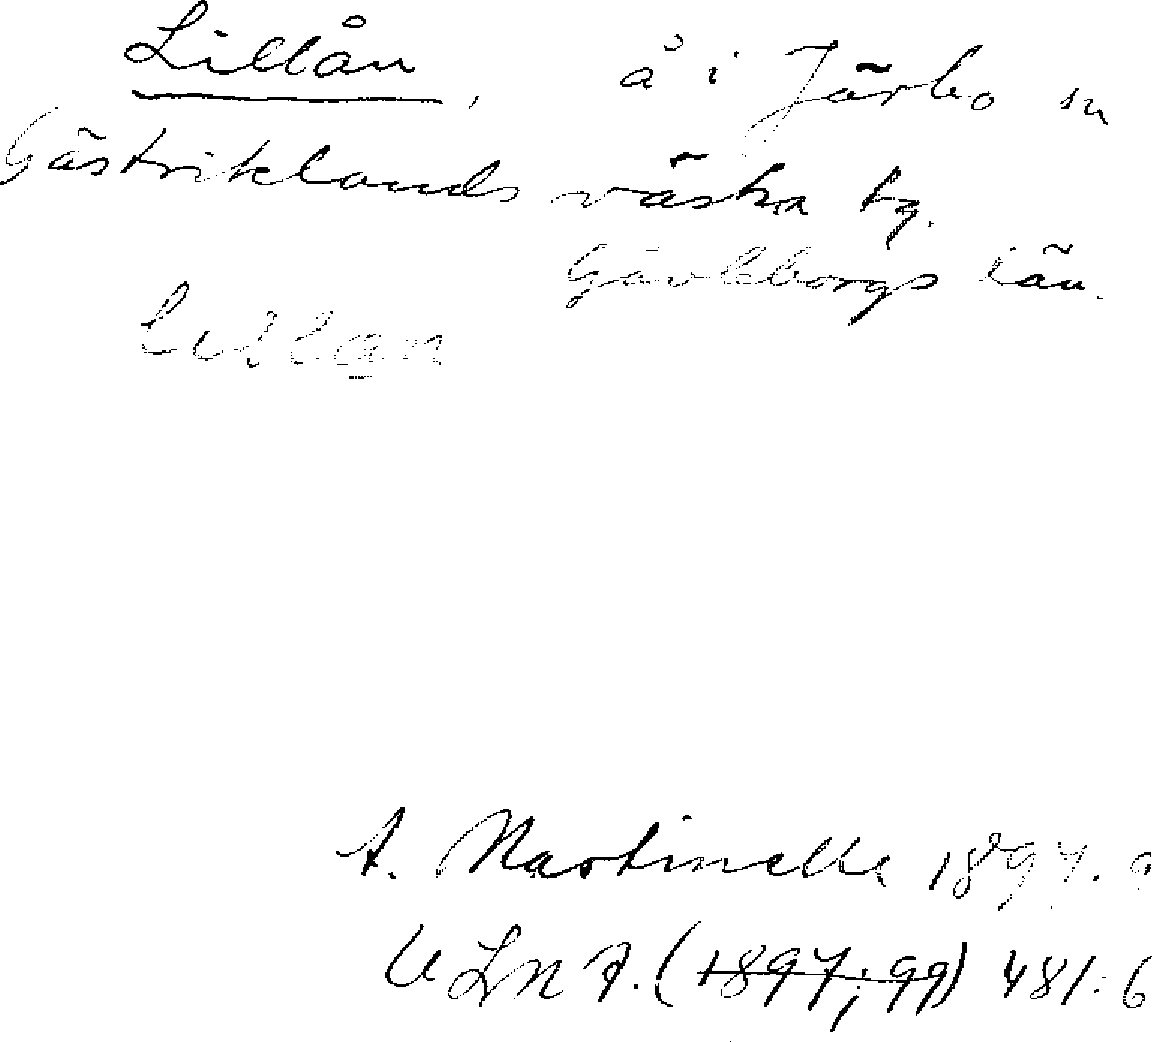 Lillån, å i Järbo sn
Gästriklands västra tg.
Gävleborgs län.
lillan
A. Martinelle 1897.
ULMA. (1897; 99) 481:6